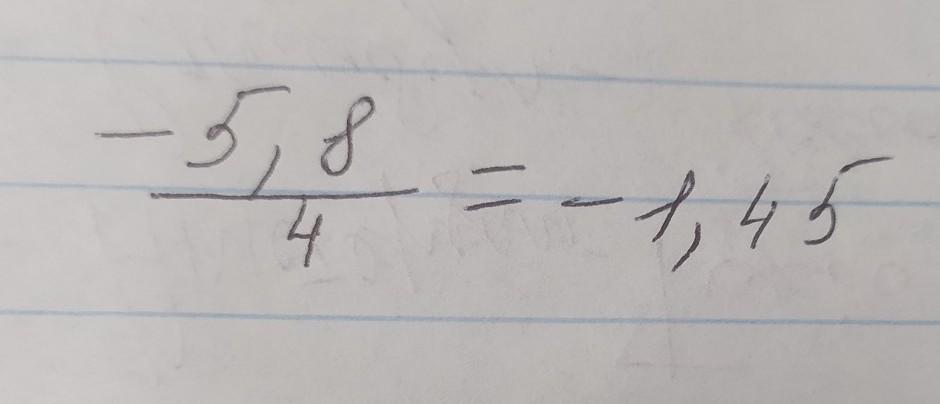 -5,8
4
= -1,45